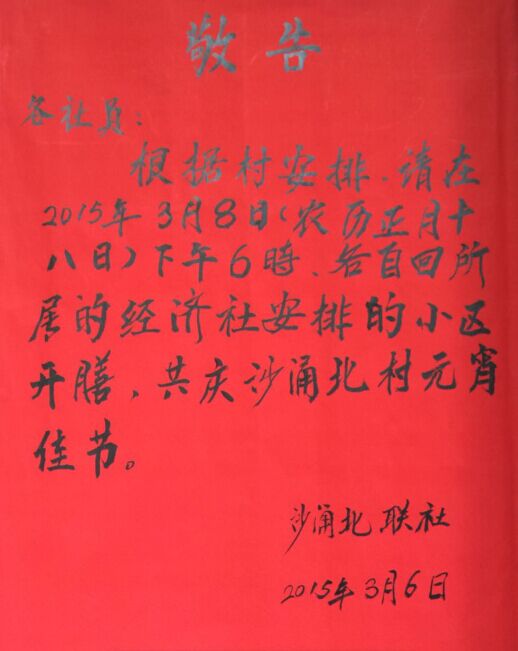 敬告
各社员：
根据村安排、请在
2015年3月8日(农历正月十
八日)下午6時、各自回所
属的经济社安排的小区
开膳，共庆沙涌北村元宵
佳节。
沙涌北联社
2015年3月6日